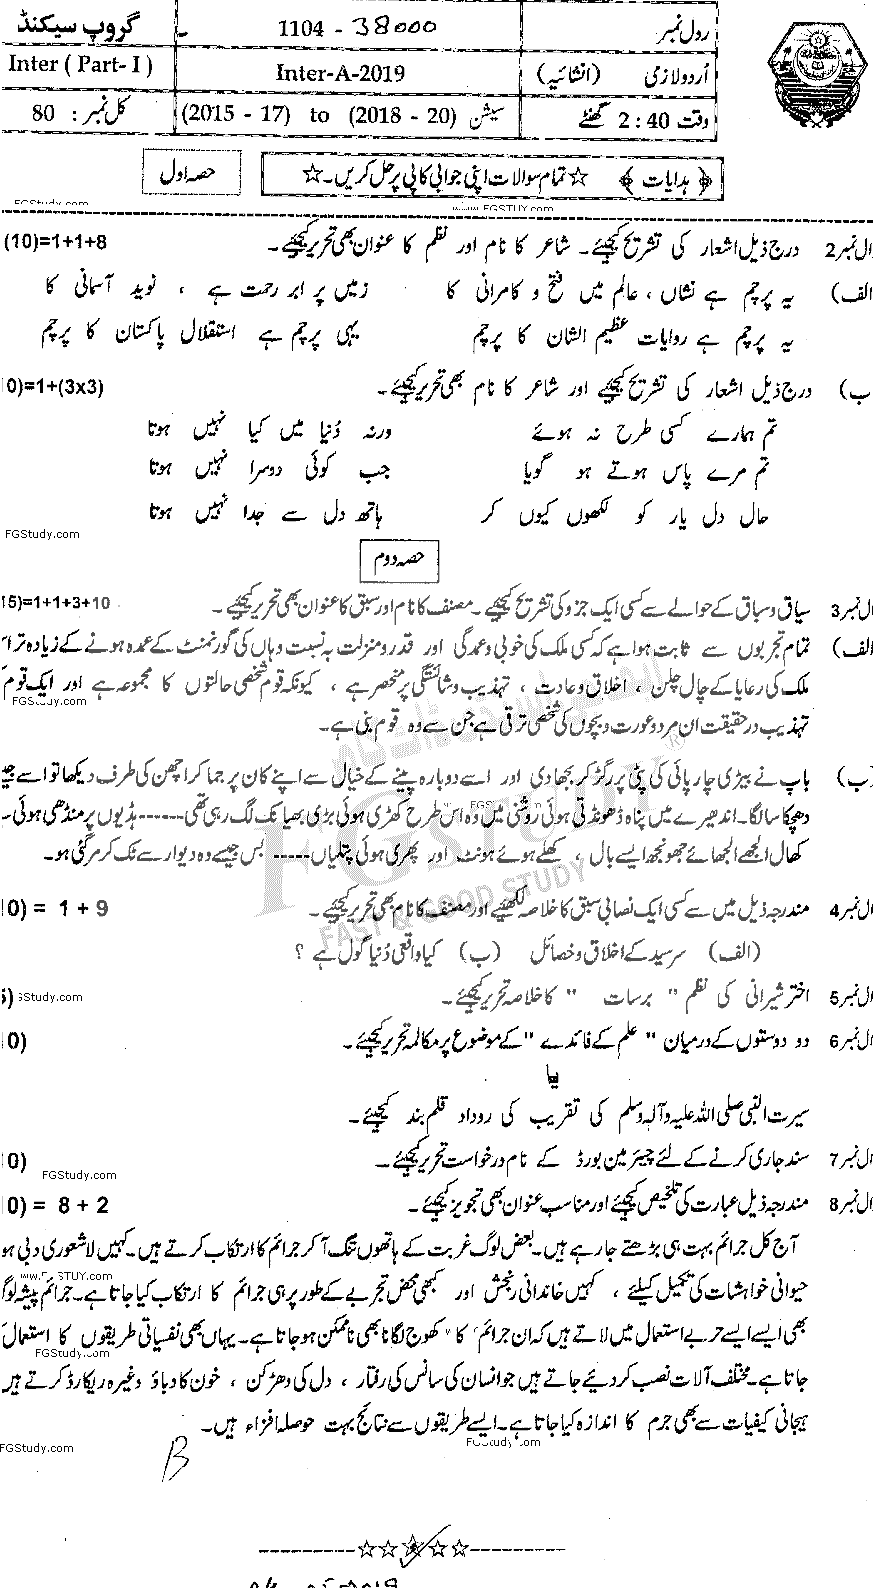 رول نمبر 1104 - 38000 گروپ سیکنڈ
اُردو لازمی (انشائیہ) Inter-A-2019 Inter ( Part- I )
وقت 2 : 40 گھنٹے سیشن (2015 - 17) to (2018 - 20) کل نمبر : 80
﴿ ہدایات ﴾ ☆ تمام سوالات اپنی جوابی کاپی پر حل کریں۔ ☆ حصہ اول
FGStudy.com www.FGSTUY.com
ال نمبر 2 درج ذیل اشعار کی تشریح کیجئے۔ شاعر کا نام اور نظم کا عنوان بھی تحریر کیجئے۔ (10)=1+1+8
الف) یہ پرچم ہے نشاں ، عالم میں فتح و کامرانی کا زمیں پر ابر رحمت ہے ، نوید آسمانی کا
یہ پرچم ہے روایات عظیم الشان کا پرچم یہی پرچم ہے استقلال پاکستان کا پرچم
ب) درج ذیل اشعار کی تشریح کیجئے اور شاعر کا نام بھی تحریر کیجئے۔ 0)=1+(3x3)
تم ہمارے کسی طرح نہ ہوئے ورنہ دُنیا میں کیا نہیں ہوتا
تم مرے پاس ہوتے ہو گویا جب کوئی دوسرا نہیں ہوتا
حال دل یار کو لکھوں کیوں کر ہاتھ دل سے جدا نہیں ہوتا
FGStudy.com
حصہ دوم
ال نمبر 3 سیاق و سباق کے حوالے سے کسی ایک جزو کی تشریح کیجئے۔ مصنف کا نام اور سبق کا عنوان بھی تحریر کیجئے۔ 15)=1+1+3+10
الف) تمام تجربوں سے ثابت ہوا ہے کہ کسی ملک کی خوبی و عمدگی اور قدر و منزلت بہ نسبت وہاں کی گورنمنٹ کے عمدہ ہونے کے زیادہ تر ا
ملک کی رعایا کے چال چلن ، اخلاق و عادت ، تہذیب و شائستگی پر منحصر ہے ، کیونکہ قوم شخصی حالتوں کا مجموعہ ہے اور ایک قوم
FGStudy.com
تہذیب در حقیقت ان مرد و عورت و بچوں کی شخصی ترقی ہے جن سے وہ قوم بنی ہے۔
ب) باپ نے بیڑی چارپائی کی پٹی پر رگڑ کر بجھا دی اور اسے دوبارہ پینے کے خیال سے اپنے کان پر جما کر اچھن کی طرف دیکھا تو اسے جیسے
دھچکا سا لگا۔ اندھیرے میں پناہ ڈھونڈتی ہوئی روشنی میں وہ اس طرح کھڑی ہوئی بڑی بھیانک لگ رہی تھی------ہڈیوں پر منڈھی ہوئی۔
کھال الجھے الجھائے جھونجھ ایسے بال ، کھلے ہوئے ہونٹ اور پھری ہوئی پتلیاں----- بس جیسے وہ دیوار سے ٹک کر مر گئی ہو۔
FG STUDY
FAST & GOOD STUDY
ال نمبر 4 مندرجہ ذیل میں سے کسی ایک نصابی سبق کا خلاصہ لکھیے اور مصنف کا نام بھی تحریر کیجئے۔ 0) = 1 + 9
(الف) سرسید کے اخلاق و خصائل (ب) کیا واقعی دُنیا گول ہے ؟
ال نمبر 5 اختر شیرانی کی نظم " برسات " کا خلاصہ تحریر کیجئے۔ 5)
FGStudy.com
ال نمبر 6 دو دوستوں کے درمیان " علم کے فائدے " کے موضوع پر مکالمہ تحریر کیجئے۔ 0)
یا
سیرت النبی صلی اللہ علیہ وآلہ وسلم کی تقریب کی روداد قلم بند کیجئے۔
ال نمبر 7 سند جاری کرنے کے لئے چیئرمین بورڈ کے نام درخواست تحریر کیجئے۔ 0)
FGStudy.com
ال نمبر 8 مندرجہ ذیل عبارت کی تلخیص کیجئے اور مناسب عنوان بھی تجویز کیجئے۔ 0) = 8 + 2
آج کل جرائم بہت ہی بڑھتے جا رہے ہیں۔ بعض لوگ غربت کے ہاتھوں تنگ آ کر جرائم کا ارتکاب کرتے ہیں۔ کہیں لاشعوری دبی ہو
www.FGSTUY.com
حیوانی خواہشات کی تکمیل کیلئے ، کہیں خاندانی رنجش اور کبھی محض تجربے کے طور پر ہی جرائم کا ارتکاب کیا جاتا ہے۔ جرائم پیشہ لوگ
بھی ایسے ایسے حربے استعمال میں لاتے ہیں کہ ان جرائم کا کھوج لگانا بھی ناممکن ہو جاتا ہے۔ یہاں بھی نفسیاتی طریقوں کا استعمال
FGStudy.com
جاتا ہے۔ مختلف آلات نصب کر دئیے جاتے ہیں جو انسان کی سانس کی رفتار ، دل کی دھڑکن ، خون کا دباؤ وغیرہ ریکارڈ کرتے ہیں
ہیجانی کیفیات سے بھی جرم کا اندازہ کیا جاتا ہے۔ ایسے طریقوں سے نتائج بہت حوصلہ افزاء ہیں۔
FGStudy.com FGStudy.com
B
----------☆☆☆☆☆----------